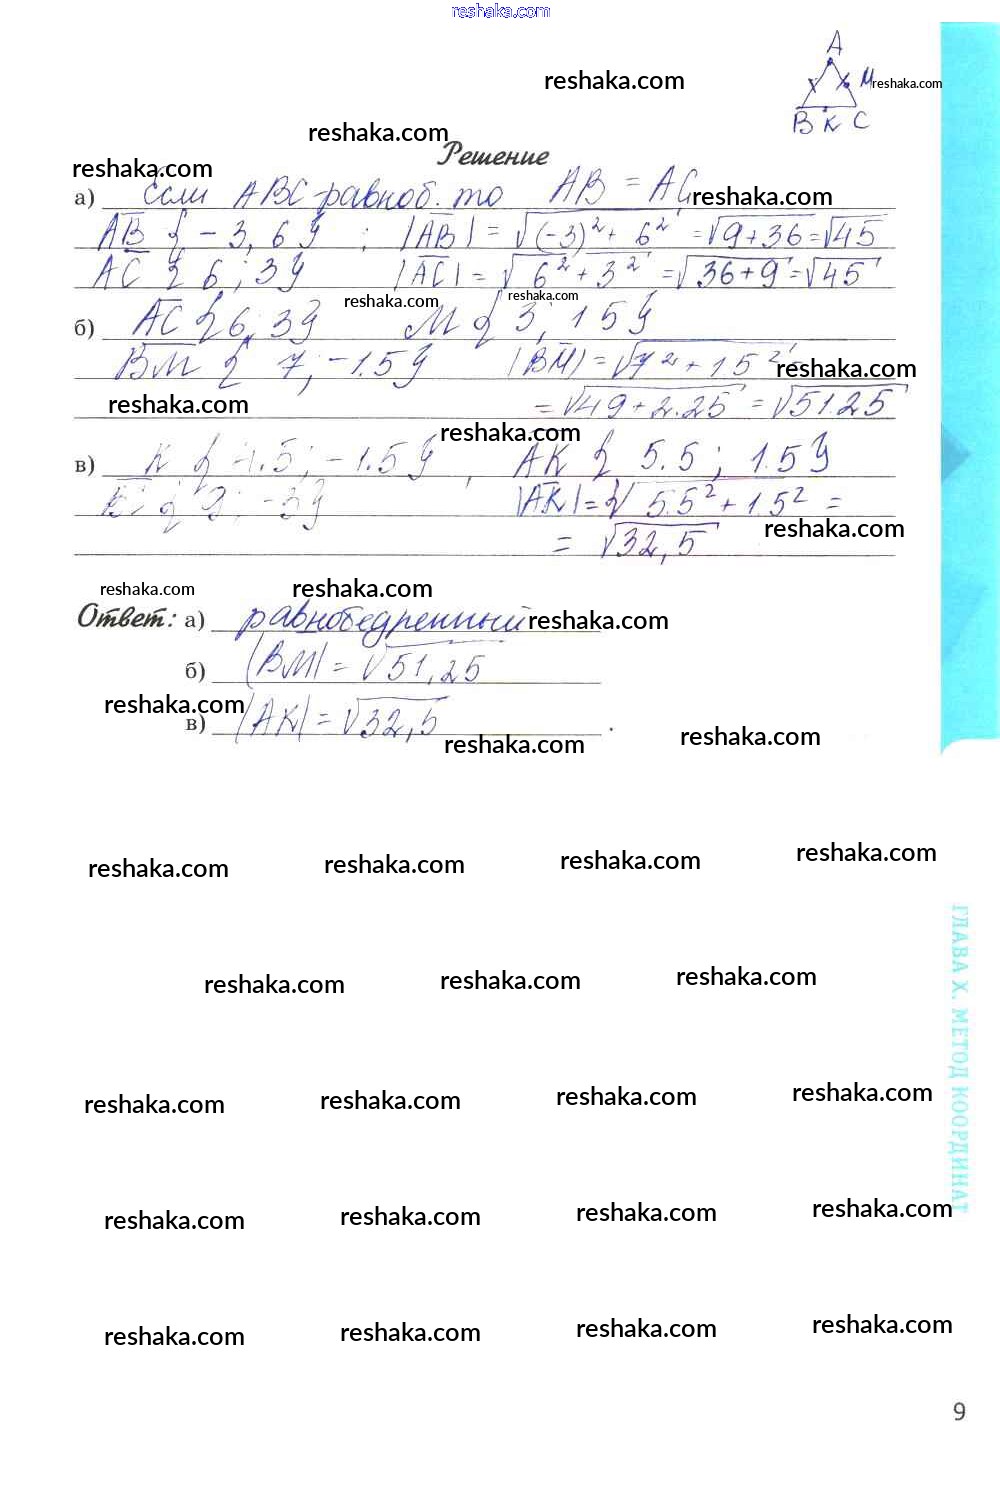 reshaka.com
A
reshaka.com
M reshaka.com
B K C
reshaka.com
Решение
reshaka.com
а) Если ABC равноб. то AB = AC reshaka.com
AB { -3, 6 } ; |AB| = √(-3)² + 6² = √9+36 = √45
AC { 6 ; 3 } |AC| = √6² + 3² = √36+9 = √45
reshaka.com reshaka.com
б) AC { 6; 3 } M { 3 ; 1.5 }
BM { 7, -1.5 } |BM| = √7² + 1.5² = reshaka.com
reshaka.com = √49 + 2.25 = √51.25
reshaka.com
в) K { -1.5 ; -1.5 } , AK { 5.5 ; 1.5 }
{ 9 ; -3 } |AK| = √5.5² + 1.5² =
= √32,5 reshaka.com
reshaka.com reshaka.com
Ответ: а) равнобедренный reshaka.com
б) |BM| = √51,25
reshaka.com
в) |AK| = √32,5 .
reshaka.com reshaka.com
reshaka.com reshaka.com reshaka.com reshaka.com
ГЛАВА X. МЕТОД КООРДИНАТ
reshaka.com reshaka.com reshaka.com
reshaka.com reshaka.com reshaka.com reshaka.com
reshaka.com reshaka.com reshaka.com reshaka.com
reshaka.com reshaka.com reshaka.com reshaka.com
9